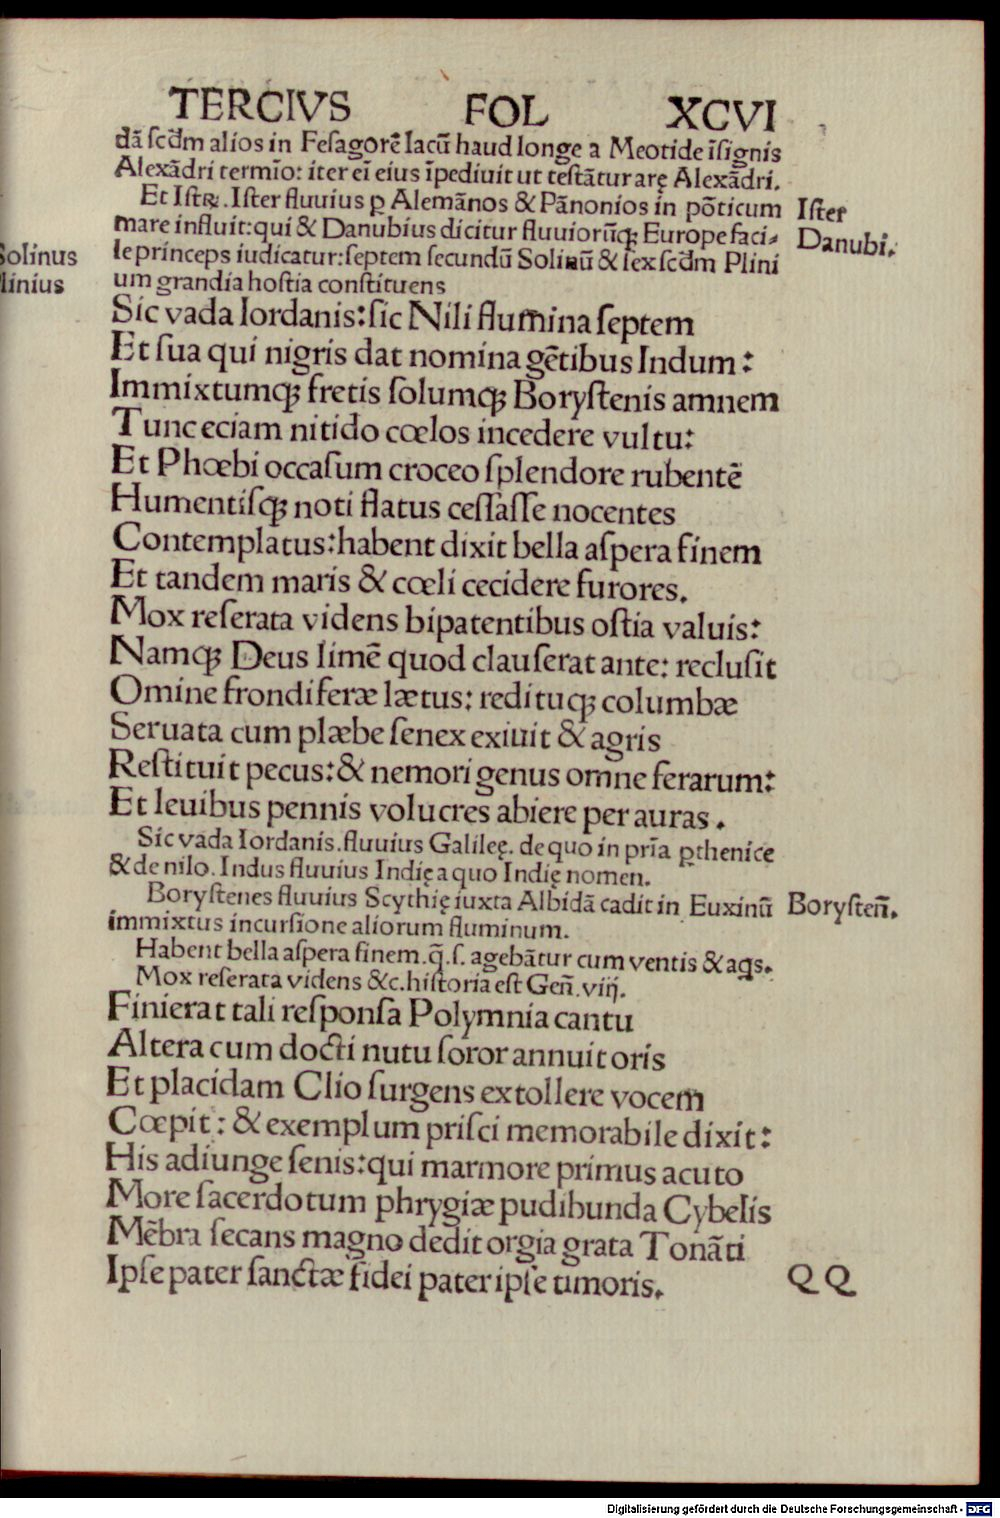 TERCIVS FOL XCVI
dã ſcd̃m alios in Feſagorẽ lacũ haud longe a Meotide ĩſignis
Alexãdri termĩo: iter eĩ eius ĩpediuit ut teſtãtur arę Alexãdri.
Et Iſtrꝝ. Iſter fluuius ꝑ Alemãnos & Pãnonios in põticum
Iſter
mare influit: qui & Danubius dicitur fluuiorũqꝫ Europe faci⸗
Danubi.
Solinus
le princeps iudicatur: ſeptem ſecundũ Solinũ & ſex ſcd̃m Plini
Plinius
um grandia hoſtia conſtituens
Sic vada Iordanis: ſic Nili flumina ſeptem
Et ſua qui nigris dat nomina gẽtibus Indum:
Immixtumqꝫ fretis ſolumqꝫ Boryſtenis amnem
Tunc eciam nitido cœlos incedere vultu:
Et Phœbi occaſum croceo ſplendore rubentẽ
Humentiſqꝫ noti flatus ceſſaſſe nocentes
Contemplatus: habent dixit bella aſpera finem
Et tandem maris & cœli cecidere furores.
Mox reſerata videns bipatentibus oſtia valuis:
Namqꝫ Deus limẽ quod clauſerat ante: recluſit
Omine frondiferæ lætus: redituqꝫ columbæ
Seruata cum plæbe ſenex exiuit & agris
Reſtituit pecus: & nemori genus omne ferarum:
Et leuibus pennis volucres abiere per auras.
Sic vada Iordanis. fluuius Galileę. de quo in pria ꝓthenice
& de nilo. Indus fluuius Indię a quo Indię nomen.
Boryſtenes fluuius Scythię iuxta Albidã cadit in Euxinũ
Boryſteñ.
immixtus incurſione aliorum fluminum.
Habent bella aſpera finem. q̃. ſ. agebãtur cum ventis & aqs.
Mox reſerata videns &c. hiſtoria eſt Geñ. viij.
Finierat tali reſponſa Polymnia cantu
Altera cum docti nutu ſoror annuit oris
Et placidam Clio ſurgens extollere vocem
Cœpit: & exemplum priſci memorabile dixit:
His adiunge ſenis: qui marmore primus acuto
More ſacerdotum phrygiæ pudibunda Cybelis
Mẽbra ſecans magno dedit orgia grata Tonãti
Ipſe pater ſanctæ fidei pater ipſe timoris.
Q Q
Digitalisierung gefördert durch die Deutsche Forschungsgemeinschaft - DFG